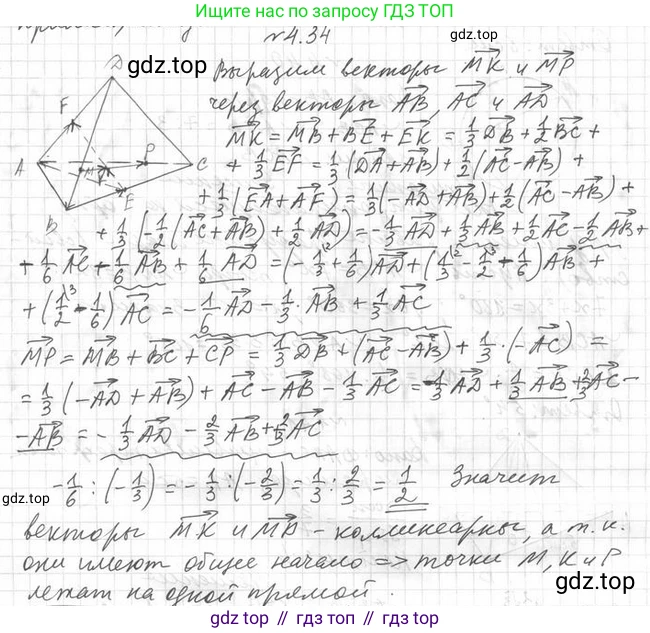 Ищите ответы по запросу ГДЗ ТОП
№4.34
gdz.top
Выразим векторы MK и MP
через векторы AB, AC и AD
MK = MB + BE + EK = 1/3 DB + 1/2 BC +
+ 1/3 EF = 1/3 (DA + AB) + 1/2 (AC - AB) +
+ 1/3 (EA + AF) = 1/3 (-AD + AB) + 1/2 (AC - AB) +
+ 1/3 (-1/2 (AC + AB) + 1/2 AD) = -1/3 AD + 1/3 AB + 1/2 AC - 1/2 AB +
+ 1/6 AC + 1/6 AB + 1/6 AD = (-1/3 + 1/6) AD + (1/3 - 1/2 - 1/6) AB +
+ (1/2 - 1/6) AC = -1/6 AD - 1/3 · AB + 1/3 AC
MP = MB + BC + CP = 1/3 DB + (AC - AB) + 1/3 · (-AC) =
= 1/3 (-AD + AB) + AC - AB - 1/3 AC = -1/3 AD + 1/3 AB + 2/3 AC -
- AB = -1/3 AD - 2/3 AB + 2/3 AC
-1/6 : (-1/3) = -1/3 : (-2/3) = 1/3 : 2/3 = 1/2 Значит
gdz.top
векторы MK и MP - коллинеарны, а т.к.
они имеют общее начало => точки M, K и P
лежат на одной прямой.
gdz.top
gdz.top // гдз.топ // gdz.top // гдз.топ
A
B
C
D
F
P
M
E